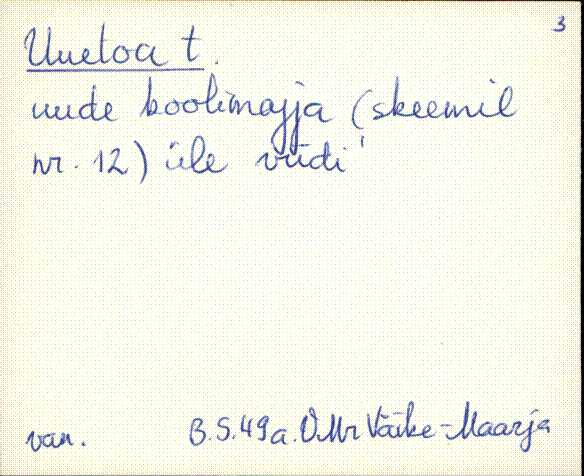 3
Uuetoa t.
uude koolimajja (skeemil
nr. 12) üle viidi'
van. B.S.49a. V.Mr Väike-Maarja